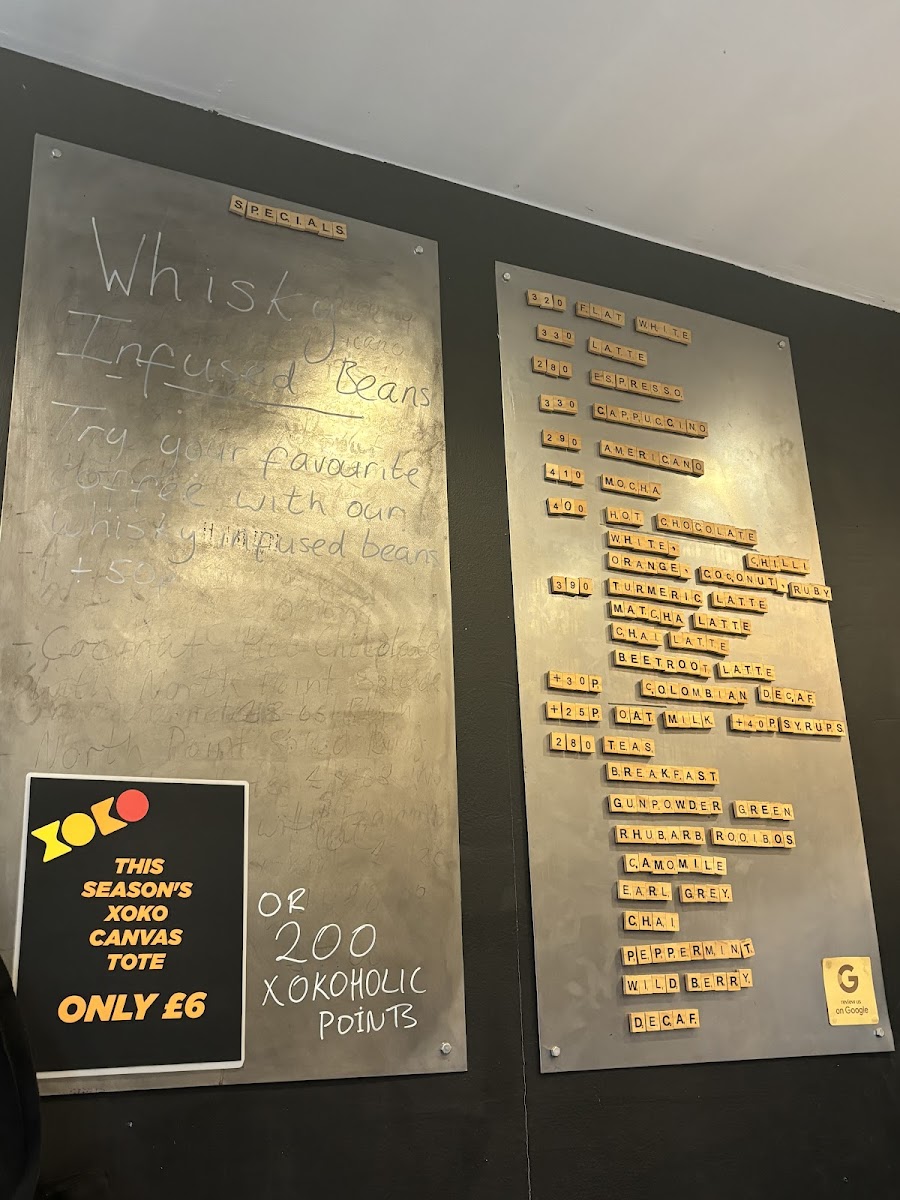 SPECIALS
Whisky
Infused Beans
Try your favourite
coffee with our
whisky infused beans
+ 50p
- Coconut
North Point
XOKO
THIS
SEASON'S
XOKO
CANVAS
TOTE
ONLY £6
OR
200
XOKOHOLIC
POINTS
320 FLAT WHITE
330 LATTE
280 ESPRESSO
330 CAPPUCCINO
290 AMERICANO
410 MOCHA
400 HOT CHOCOLATE
WHITE, CHILLI
ORANGE, COCONUT, RUBY
390 TURMERIC LATTE
MATCHA LATTE
CHAI LATTE
BEETROOT LATTE
+30P COLOMBIAN DECAF
+25P OAT MILK +40P SYRUPS
280 TEAS
BREAKFAST
GUNPOWDER GREEN
RHUBARB ROOIBOS
CAMOMILE
EARL GREY
CHAI
PEPPERMINT
WILD BERRY
DECAF
G
review us
on Google